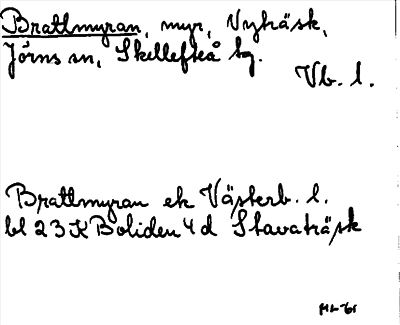 Brattmyran, myr, Vyträsk,
Jörns sn, Skellefteå tg.
Vb. l.
Brattmyran ek Västerb. l.
bl 23 K Boliden 4 d Stavaträsk